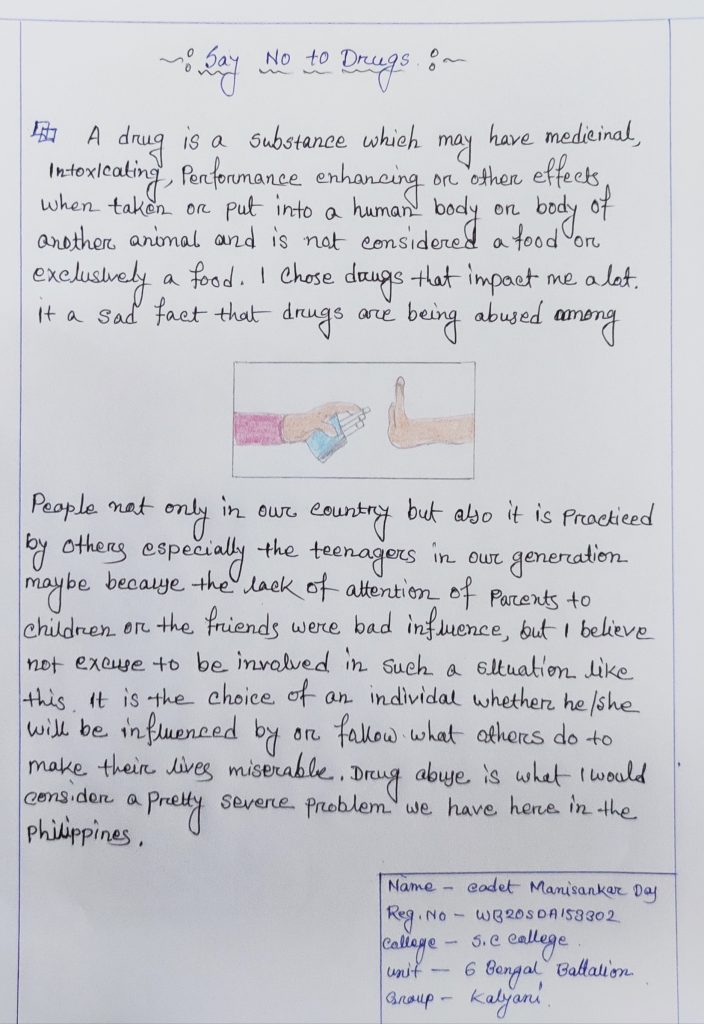 Say No to Drugs
A drug is a substance which may have medicinal,
Intoxicating, Performance enhancing or other effects
when taken or put into a human body or body of
another animal and is not considered a food or
exclusively a food. I chose drugs that impact me a lot.
it a sad fact that drugs are being abused among
People not only in our country but also it is Practiced
by others especially the teenagers in our generation
maybe because the lack of attention of Parents to
children or the friends were bad influence, but I believe
not excuse to be involved in such a situation like
this. It is the choice of an individal whether he/she
will be influenced by or follow what others do to
make their lives miserable. Drug abuse is what I would
consider a Pretty severe problem we have here in the
Philippines.
Name - Cadet Manisankar Day
Reg. No - WB20SDA158302
College - S.C College.
unit - 6 Bengal Battalion
Group - Kalyani.